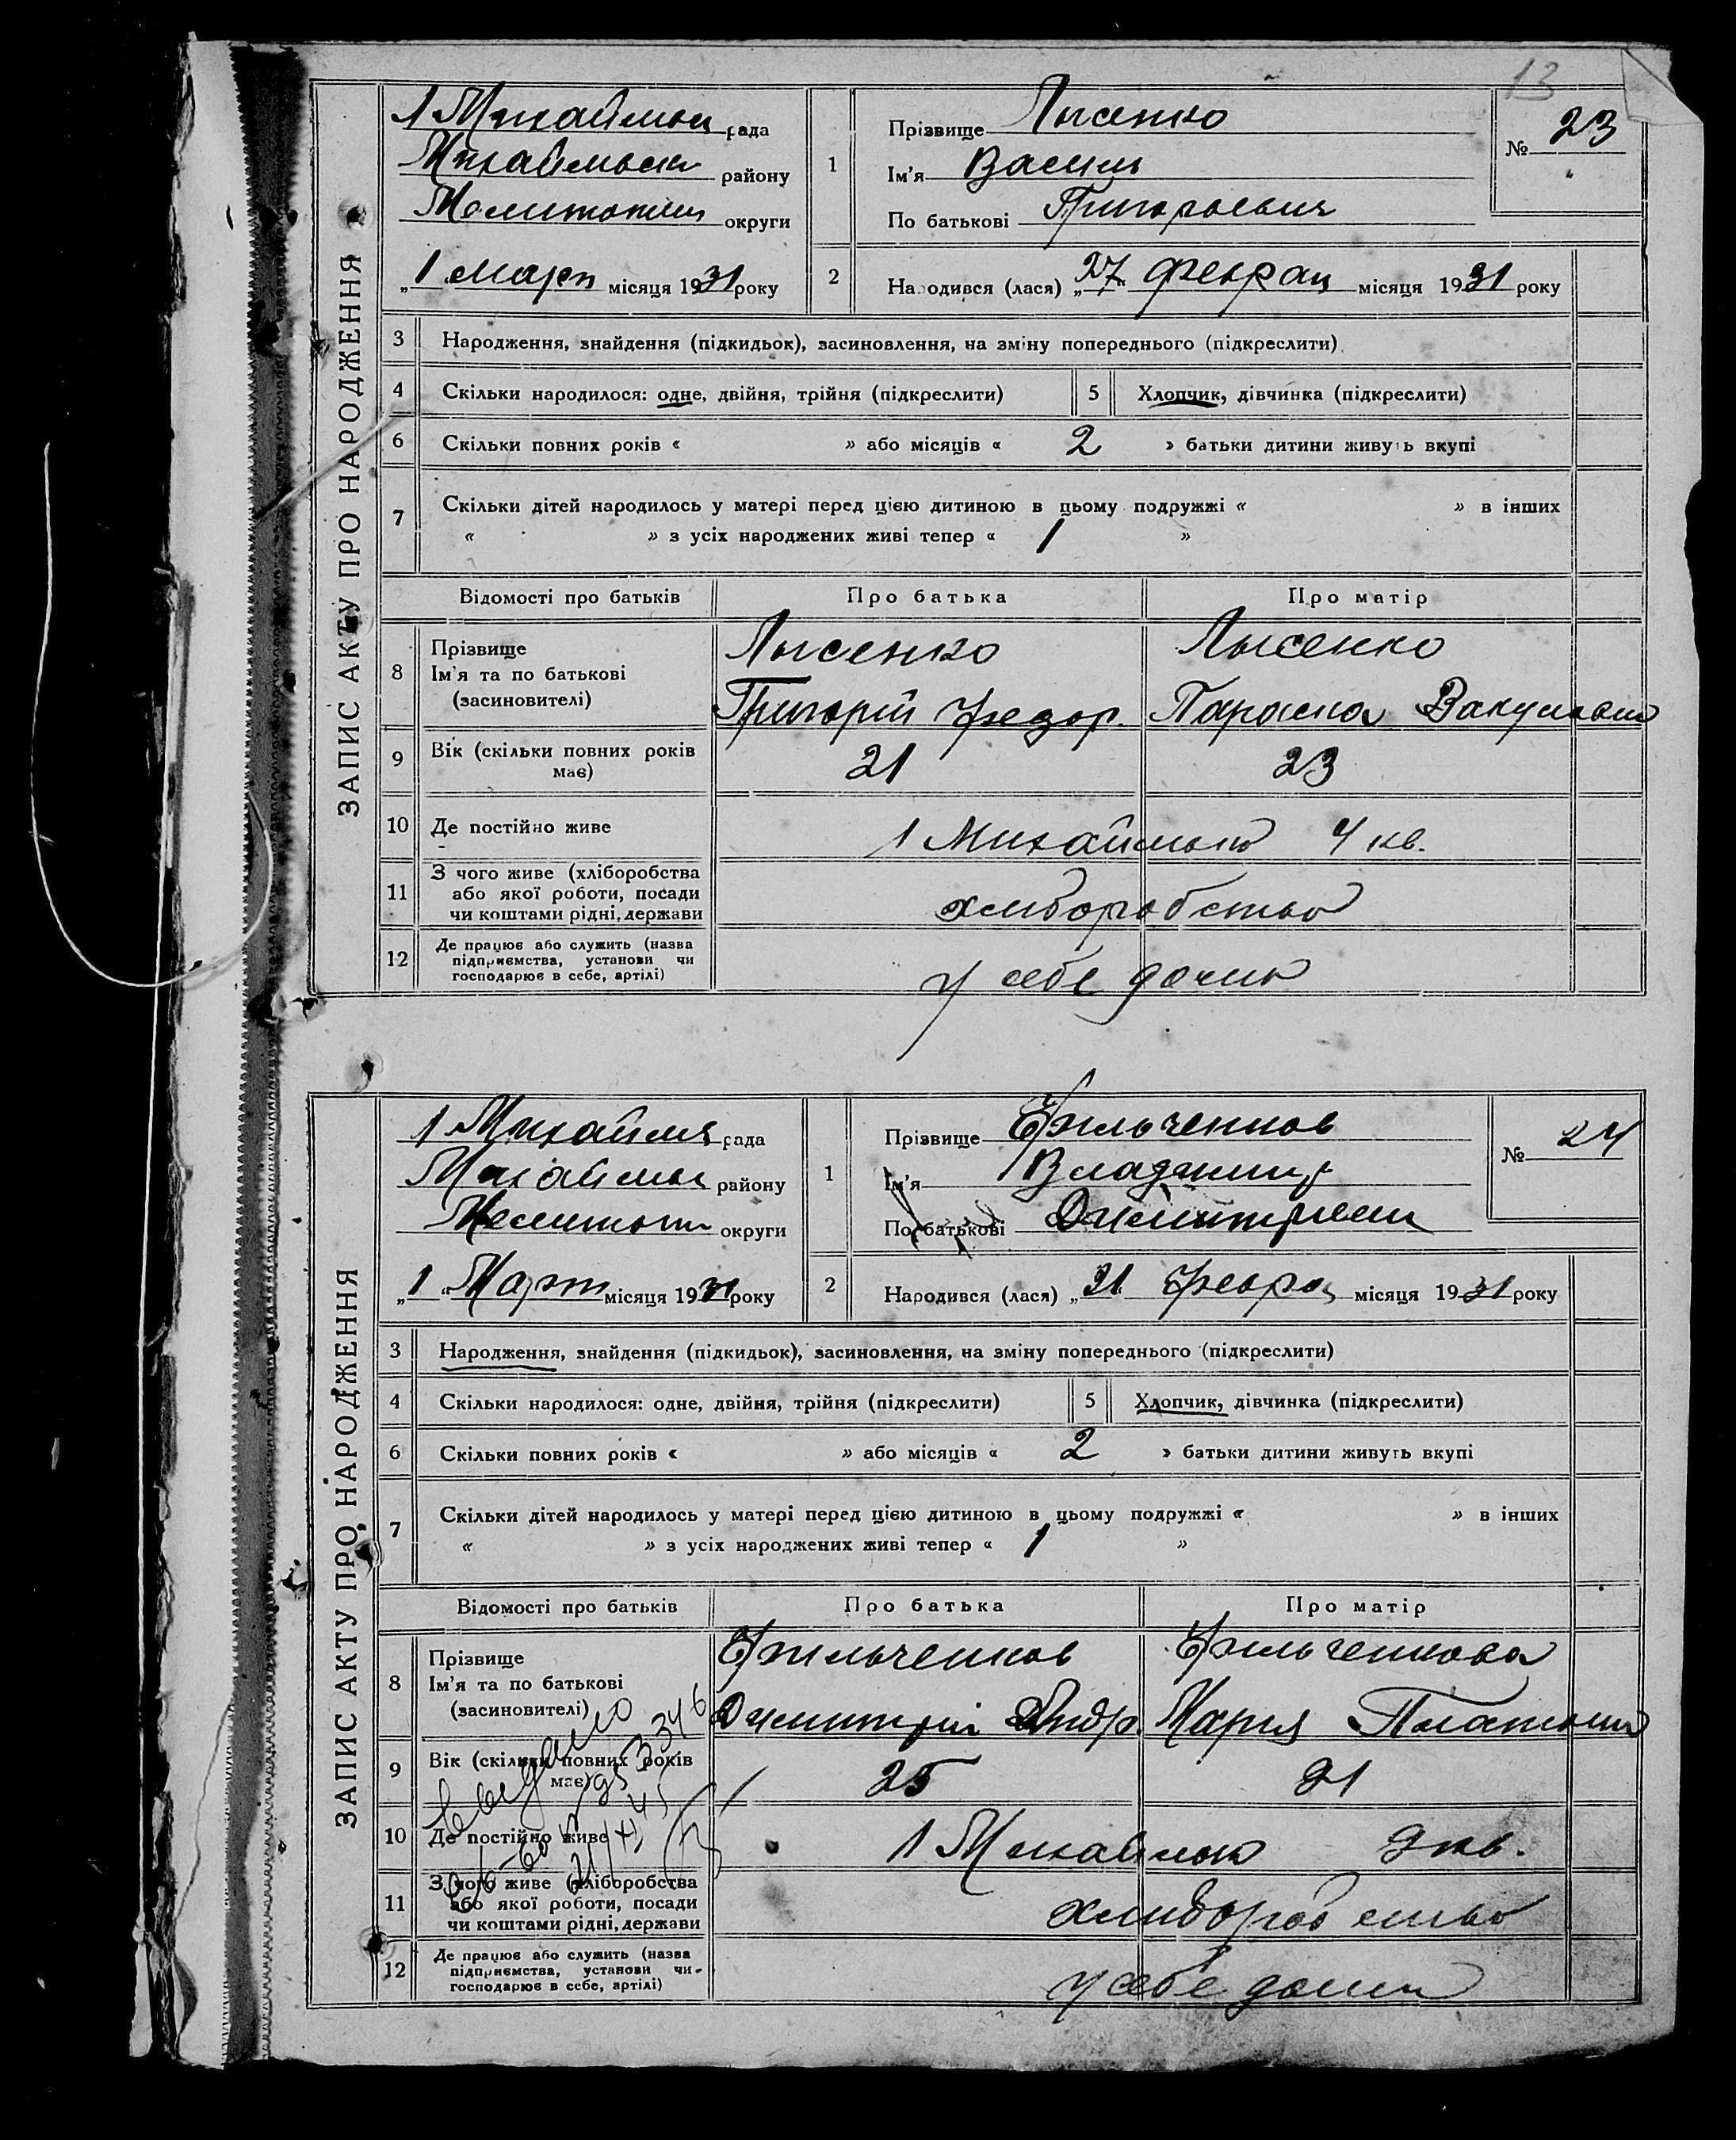 13
ЗАПИС АКТУ ПРО НАРОДЖЕННЯ
1 Михайлівськ рада
Михайлівськ району
Мелитопільс округи
„1 Март місяця 1931 року
1
Прізвище Лысенко
Ім'я Василь
По батькові Григорьевич
№ 23
2
Народився (лася) „27" Феврал місяця 1931 року
3 Народження, знайдення (підкидьок), засиновлення, на зміну попереднього (підкреслити)
4 Скільки народилося: одне, двійня, трійня (підкреслити) 5 Хлопчик, дівчинка (підкреслити)
6 Скільки повних років « » або місяців « 2 » батьки дитини живуть вкупі
7 Скільки дітей народилось у матері перед цією дитиною в цьому подружжі « » в інших
« » з усіх народжених живі тепер « 1 »
Відомості про батьків Про батька Про матір
8 Прізвище
Ім'я та по батькові
(засиновителі)
Лысенко Лысенко
Григорій Федор. Параска Вакуловна
9 Вік (скільки повних років
має)
21 23
10 Де постійно живе 1 Михайлівка 4 кв.
11 З чого живе (хліборобства
або якої роботи, посади
чи коштами рідні, держави
хліборобство
12 Де працює або служить (назва
підприємства, установи чи
господарює в себе, артілі)
у себе дома
ЗАПИС АКТУ ПРО НАРОДЖЕННЯ
1 Михайлівс рада
Михайлівс району
Мелитоп округи
„1" Март місяця 1931 року
1
Прізвище
Ім'я Владимир
По батькові Дмитриев
№ 24
2
Народився (лася) „21 Феврал місяця 1931 року
3 Народження, знайдення (підкидьок), засиновлення, на зміну попереднього (підкреслити)
4 Скільки народилося: одне, двійня, трійня (підкреслити) 5 Хлопчик, дівчинка (підкреслити)
6 Скільки повних років « » або місяців « 2 » батьки дитини живуть вкупі
7 Скільки дітей народилось у матері перед цією дитиною в цьому подружжі « » в інших
« » з усіх народжених живі тепер « 1 »
Відомості про батьків Про батька Про матір
8 Прізвище
Ім'я та по батькові
(засиновителі)
Дмитрій Андр. Мария Платоновн
9 Вік (скільки повних років
має)
25 21
10 Де постійно живе 1 Михайлівка кв.
11 З чого живе (хліборобства
або якої роботи, посади
чи коштами рідні, держави
хліборобство
12 Де працює або служить (назва
підприємства, установи чи
господарює в себе, артілі)
у себе дома